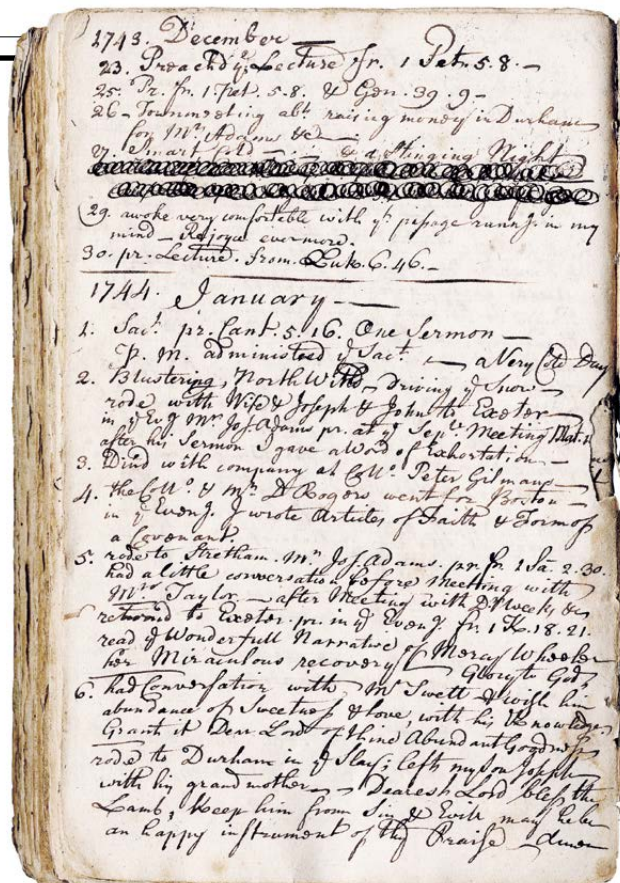 1743. December —
23. Preachd yᵉ Lecture fr. 1 Pet. 5.8. —
25. Pr. fr. 1 Pet. 5.8. & Gen. 39.9 —
26 — Townmeeting abt. raising money in Durham
for Mr. Adams &c —
27. Smart Cold — & a Stinging Night
29. awoke very comfortable with yˢ passage runng. in my
mind — Rejoyce evermore.
30. pr. Lecture. From Luk. 6.46. —
1744. January —
1. Sact. pr. Cant. 5.16. One Sermon —
P. M. administed yᵉ Sact. — a Very Cold Day
2. Blustering, North Wind, driving yᵉ Snow
rode with Wife & Joseph & John to Exeter
in yᵉ Evg Mr. Jos. Adams pr. at yᵉ Sepᵗᵉ Meeting Mat.
after his Sermon I gave a Word of Exhortation —
3. Dind with company at Collᵒ. Peter Gilmans —
4. the Collᵒ. & Mr. D Rogers went for Boston —
in yᵉ Eveng. I wrote Articles of Faith & Form of
a Covenant.
5. rode to Stretham. Mr. Jos. Adams. pr. fr. 1 Sa. 2.30.
had a little conversation before Meeting with
Taylor — after Meeting with Dr Weeks &c
returnd to Exeter. pr. in yᵉ Eveng fr. 1 K. 18.21.
read yᵉ Wonderfull Narrative of Mercy Wheeler
her Miraculous recovery — Glory to God,
6. had Conversation with Mr Swett & with him
abundance of Sweetness & love, with his Knowledge,
Grant it Dear Lord of thine Abundant Goodness
rode to Durham in yᵉ Slay; left my son Joseph
with his grandmother — Dearest Lord bless the
Lamb, Keep him from Sin & Evil may he be
an happy instrument of thy Praise — Amen